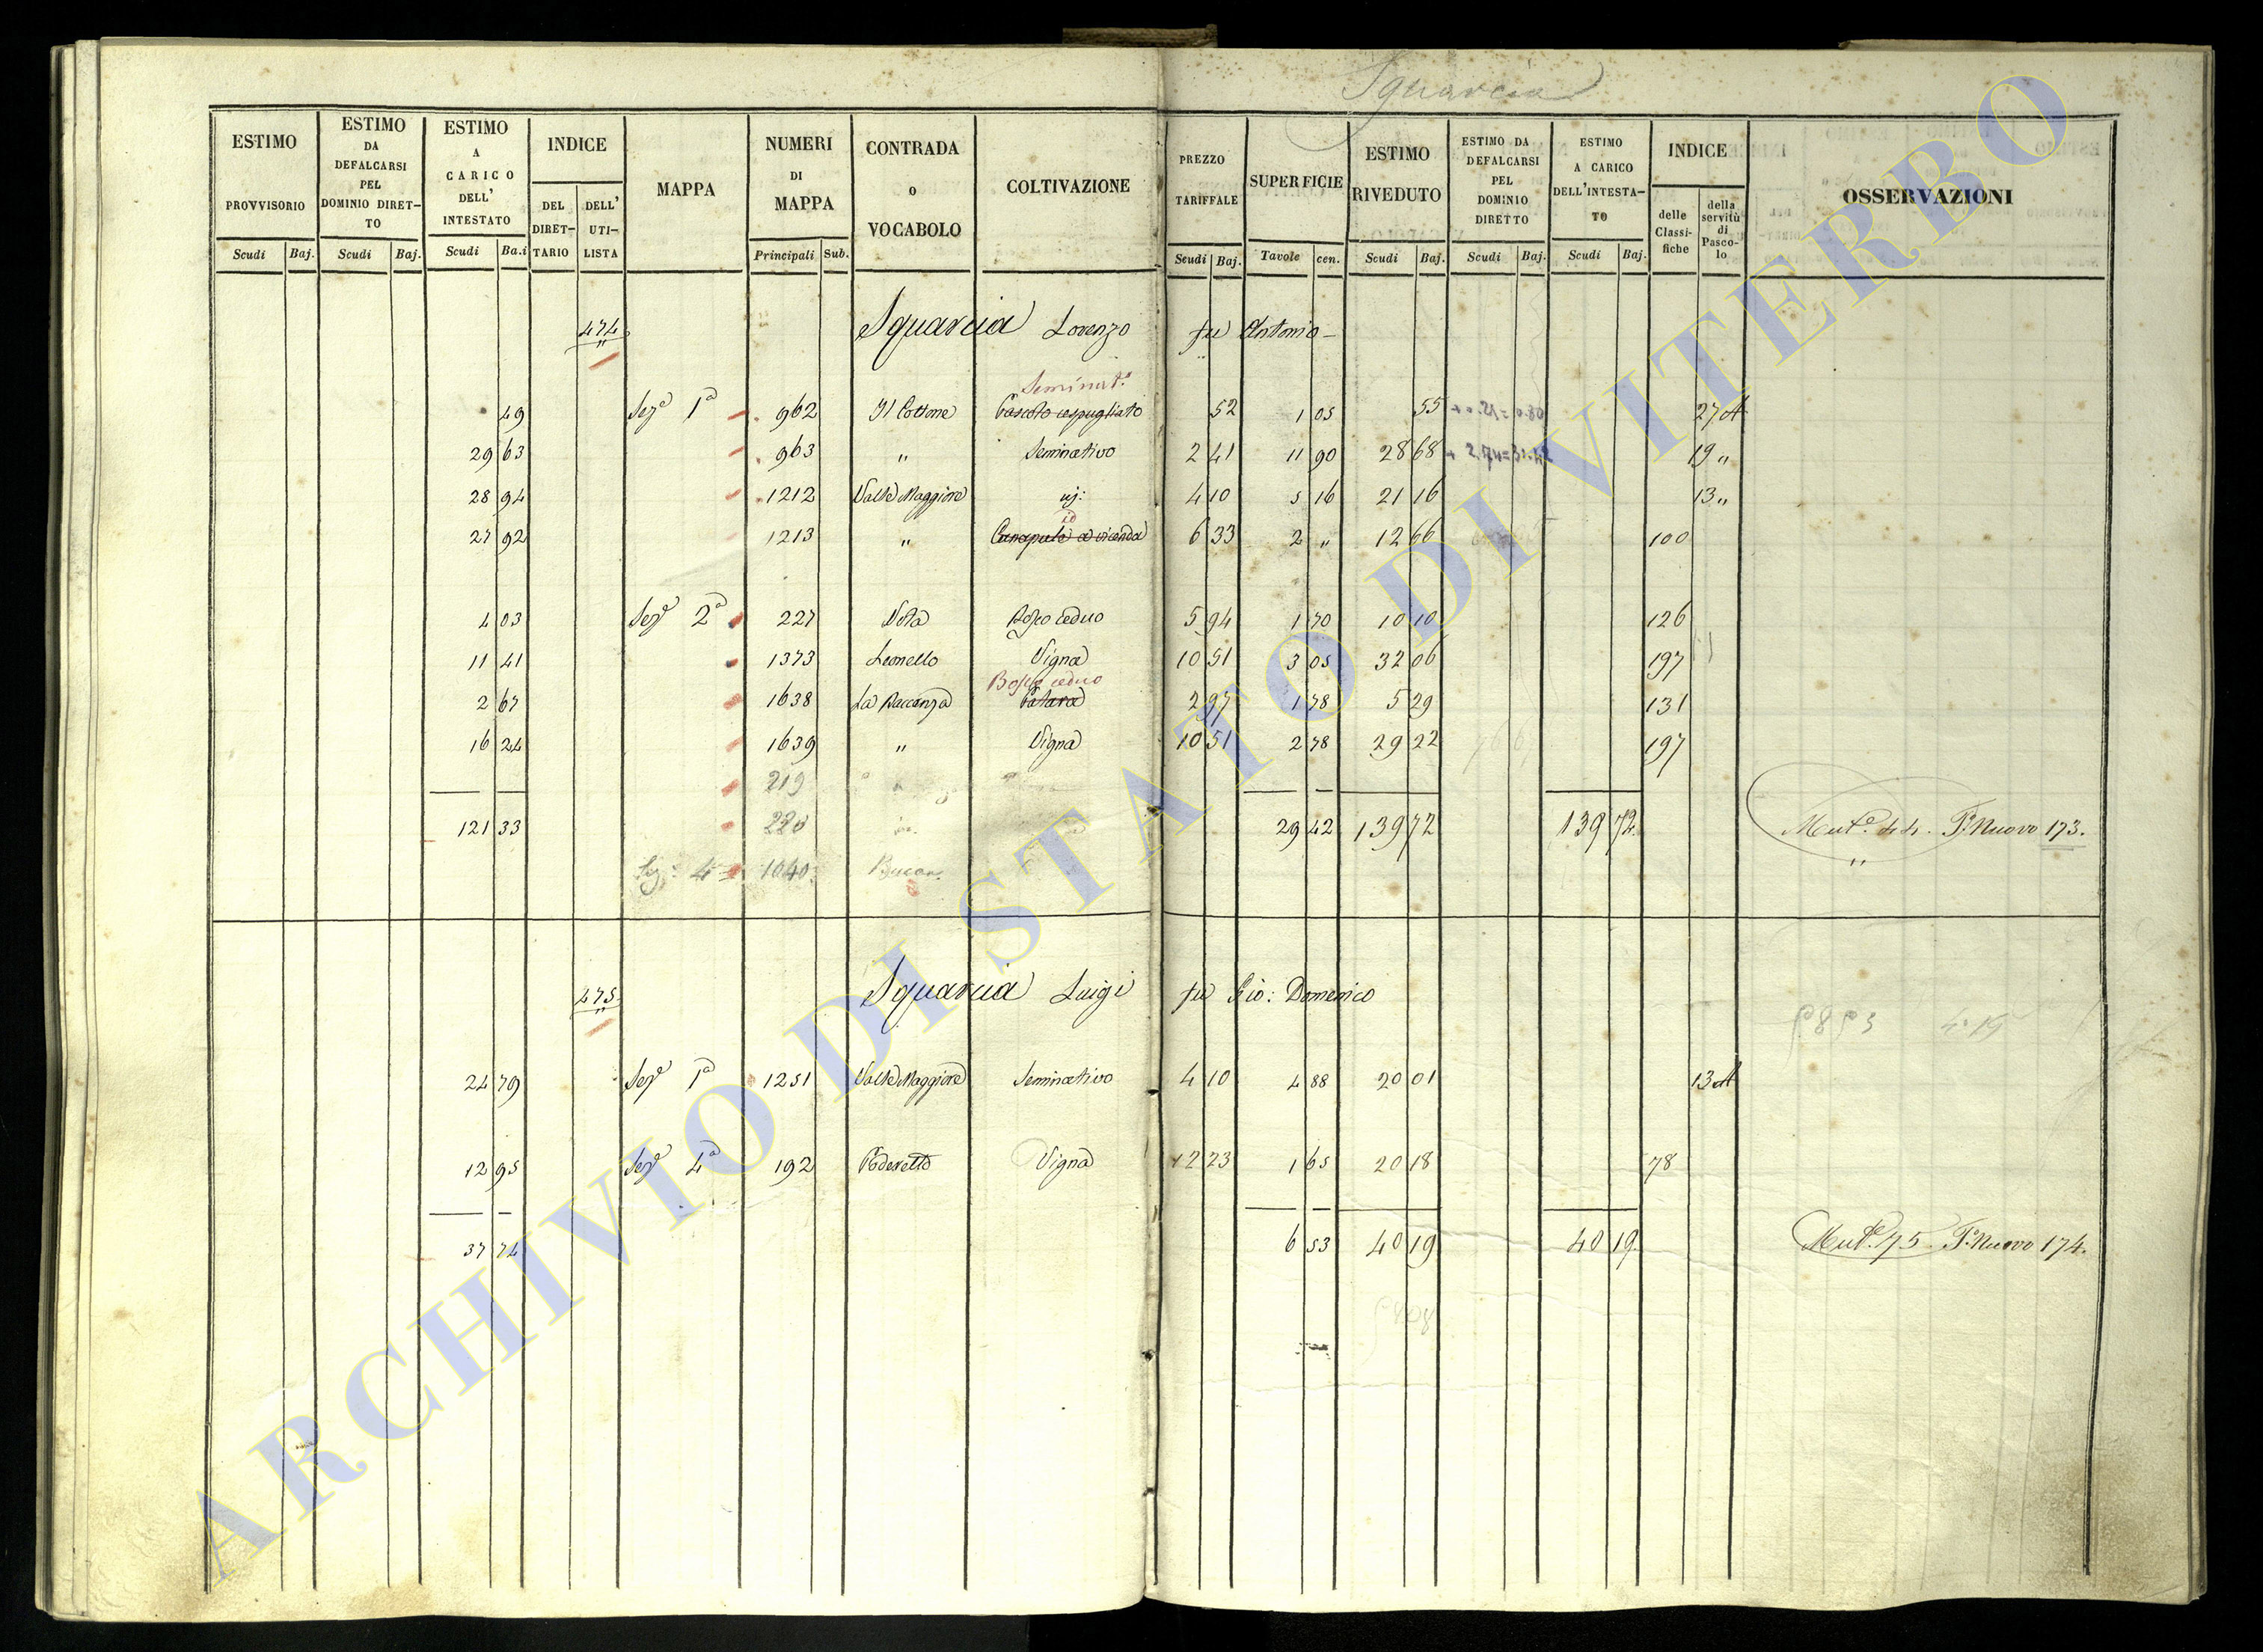 Sguarcia
ESTIMO PROVVISORIO Scudi Baj.
ESTIMO DA DEFALCARSI PEL DOMINIO DIRET-TO Scudi Baj.
ESTIMO A CARICO DELL' INTESTATO Scudi Ba.i
INDICE DEL DIRET-TARIO DELL' UTI-LISTA
MAPPA
NUMERI DI MAPPA Principali Sub.
CONTRADA o VOCABOLO
COLTIVAZIONE
PREZZO TARIFFALE Scudi Baj.
SUPERFICIE Tavole cen.
ESTIMO RIVEDUTO Scudi Baj.
ESTIMO DA DEFALCARSI PEL DOMINIO DIRETTO Scudi Baj.
ESTIMO A CARICO DELL'INTESTA-TO Scudi Baj.
INDICE delle Classi-fiche della servitù di Pasco-lo
OSSERVAZIONI
474 Sguarcia Lorenzo fu Antonio
Seminat.o
49 Sez.e 1a 962 Il Cottone Pascolo cespugliato 52 1 05 55 27 A
29 63 963 " Seminativo 2 41 11 90 28 68 19 "
28 94 1212 Valle Maggiore id: 4 10 5 16 21 16 13 "
id
27 92 1213 " Canapule a vicenda 6 33 2 " 12 66 100
4 03 Sez.e 2a 227 Bosco ceduo 5 94 1 70 10 10 126
11 41 1373 Leonello Vigna 10 51 3 05 32 06 197
Bosco ceduo
2 67 1638 La 2 97 1 78 5 29 131
16 24 1639 " Vigna 10 51 2 78 29 22 197
219
121 33 220 29 42 139 72 139 72 Mut.e 44. P.a Nuovo 173.
Sez: 4 1040
475 Sguarcia Luigi fu Gio: Domenico
24 79 Sez.e 1a 1251 Valle Maggiore Seminativo 4 10 4 88 20 01 13 A
12 95 Sez.e 4a 192 Poderetto Vigna 12 23 1 65 20 18 78
37 74 6 53 40 19 40 19 Mut.e 75. P.a Nuovo 174.
ARCHIVIO DI STATO DI VITERBO